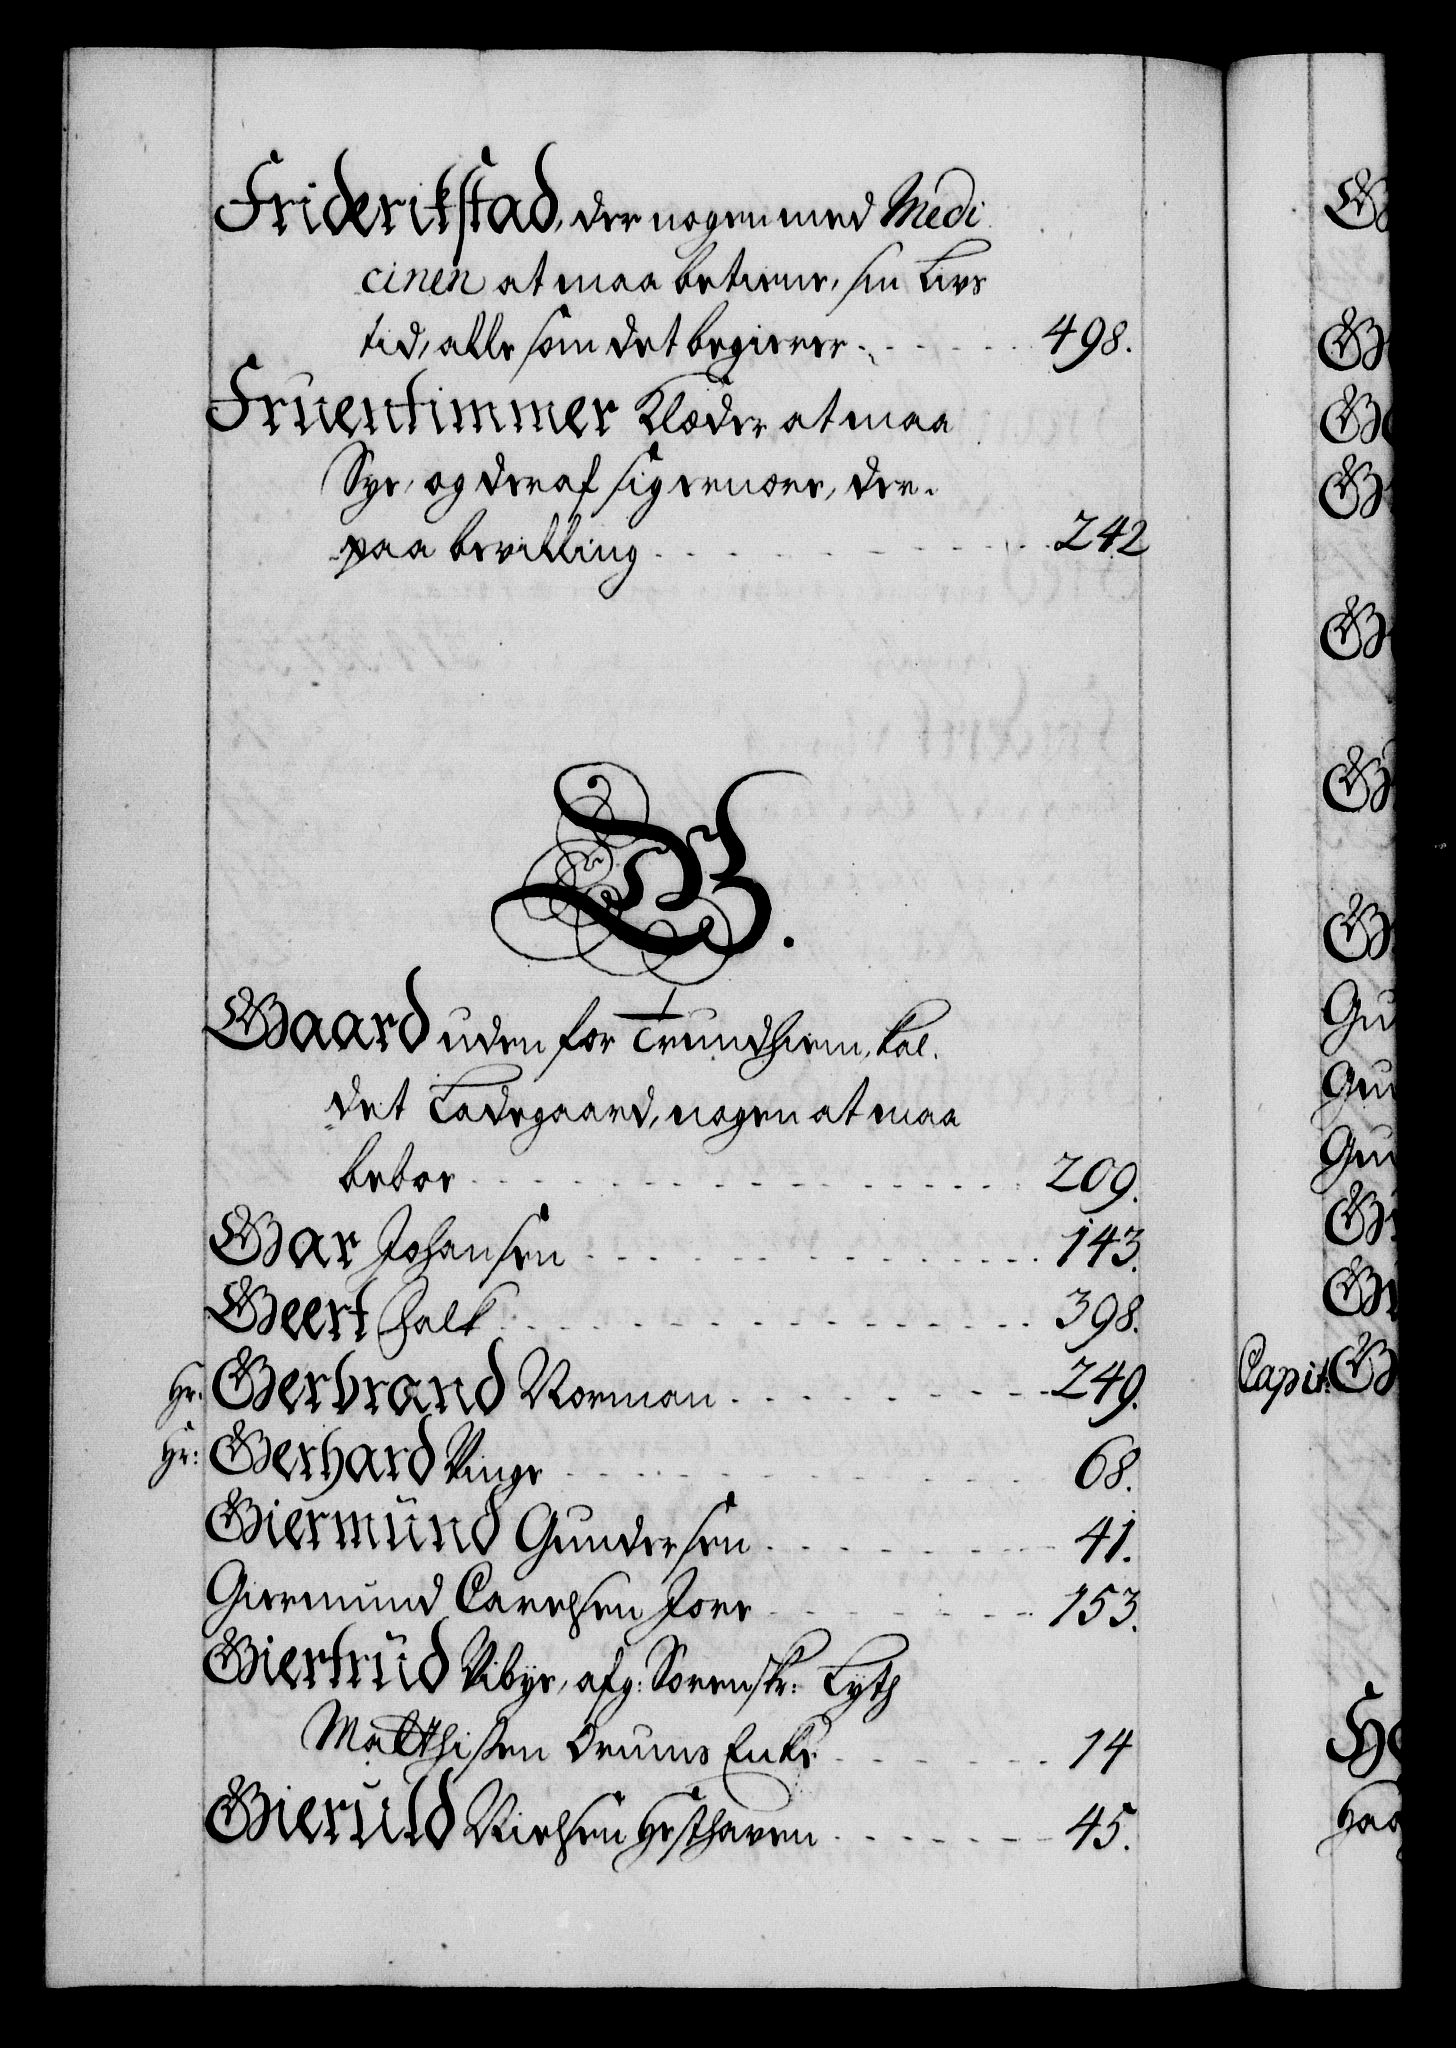 Friderikstad, der nogen med Medi
cinen at maa betiene, sin Livs
tid, alle som det begierer 498.
Fruentimmer Klæder at maa
Sye, og deraf sig ernære, der-
paa bevilling 242
G.
Gaard uden for Trundhiem, kal-
det Ladegaard, nogen at maa
beboe 209.
Gar Johansen 143.
Geert Falk 398.
Hr: Gerbrand Norman 249.
Hr: Gerhard Vinge 68.
Giermund Gundersen 41.
Giermund Carelsen Fore 153.
Giertrud Vibye, afg: Sorenskr: Lyth
Matthisen Orums Enke 14
Gieruld Nielsen Hesthaven 45.
Capit: